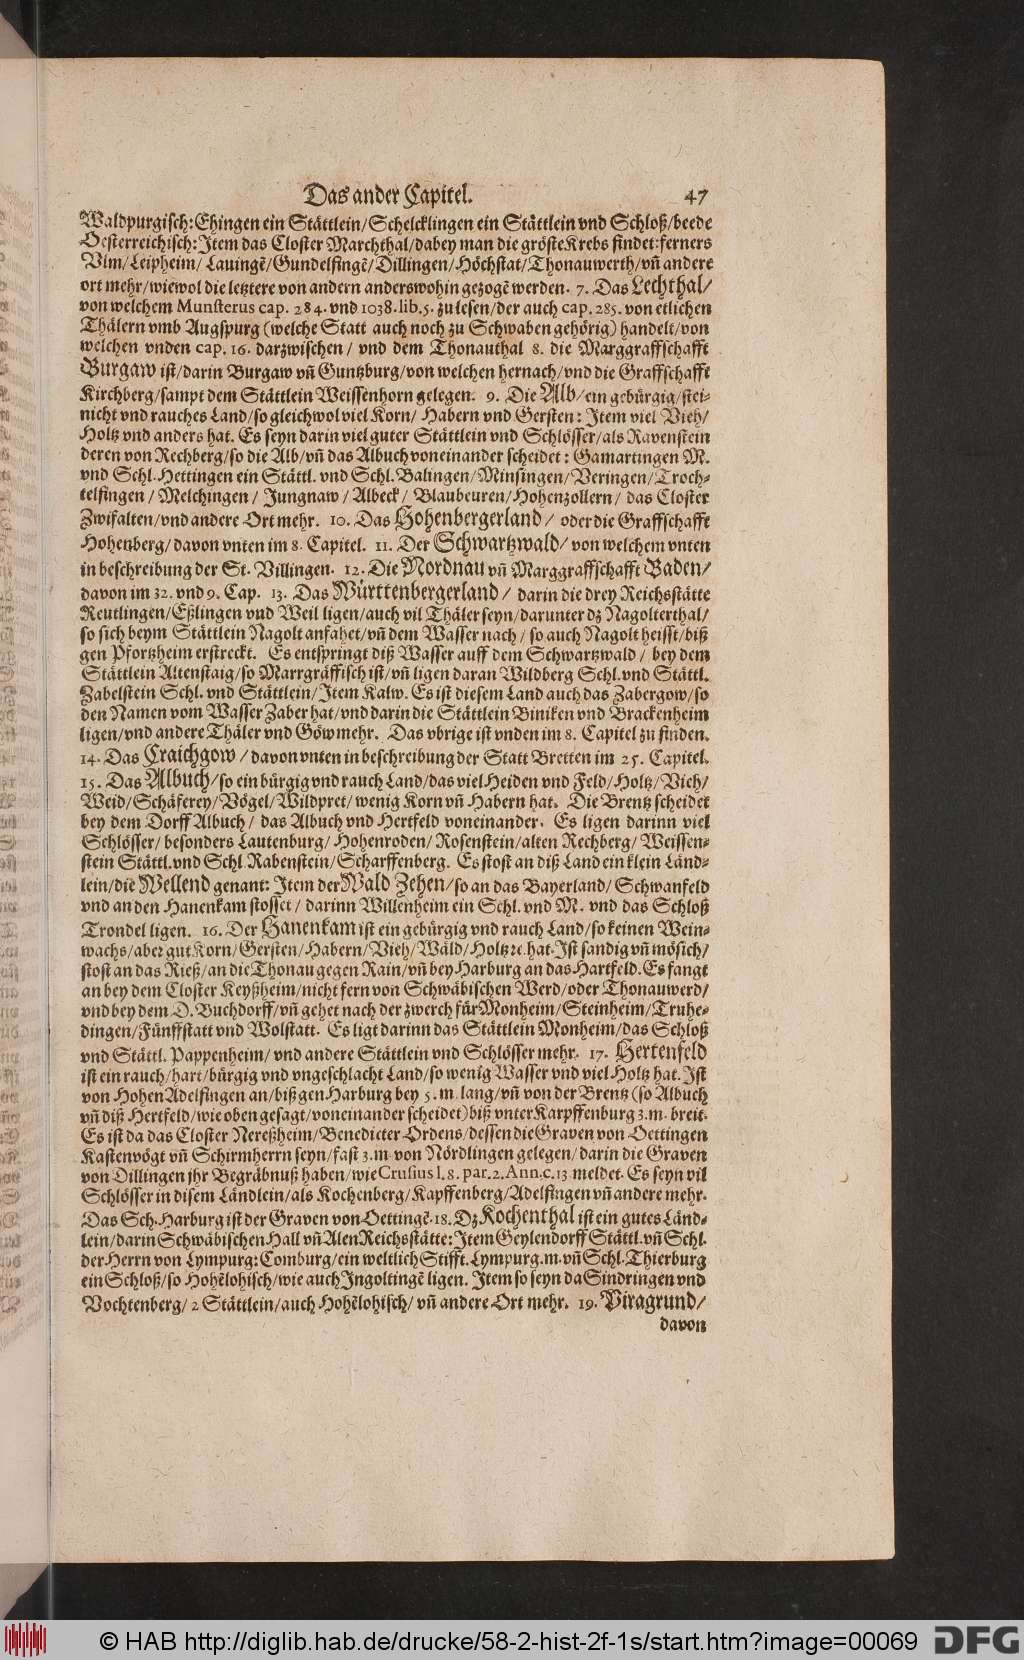 Das ander Capitel. 47
Waldpurgisch: Ehingen ein Stättlein/ Schelcklingen ein Stättlein vnd Schloß/ beede
Oesterreichisch: Item das Closter Marchthal/ dabey man die gröste Krebs findet: ferners
Vlm/ Leipheim/ Lauingẽ/ Gundelfingẽ/ Dillingen/ Höchstat/ Thonauwerth/ vñ andere
ort mehr/ wiewol die letztere von andern anderswohin gezogẽ werden. 7. Das Lechthal/
von welchem Munsterus cap. 284. vnd 1038. lib. 5. zu lesen/ der auch cap. 285. von etlichen
Thälern vmb Augspurg (welche Statt auch noch zu Schwaben gehörig) handelt/ von
welchen vnden cap. 16. darzwischen/ vnd dem Thonauthal 8. die Marggraffschafft
Burgaw ist/ darin Burgaw vñ Guntzburg/ von welchen hernach/ vnd die Graffschafft
Kirchberg/ sampt dem Stättlein Weissenhorn gelegen. 9. Die Alb/ ein gebürgig/ stei-
nicht vnd rauches Land/ so gleichwol viel Korn/ Habern vnd Gersten: Item viel Vieh/
Holtz vnd anders hat. Es seyn darin viel guter Stättlein vnd Schlösser/ als Ravenstein
deren von Rechberg/ so die Alb/ vñ das Albuch voneinander scheidet: Gamartingen M.
vnd Schl. Hettingen ein Stättl. vnd Schl. Balingen/ Minsingen/ Veringen/ Troch-
telfingen/ Melchingen/ Jungnaw/ Albeck/ Blaubeuren/ Hohenzollern/ das Closter
Zwifalten/ vnd andere Ort mehr. 10. Das Hohenbergerland/ oder die Graffschafft
Hohenberg/ davon vnten im 8. Capitel. 11. Der Schwartzwald/ von welchem vnten
in beschreibung der St. Villingen. 12. Die Mordnau vñ Marggraffschafft Baden/
davon im 32. vnd 9. Cap. 13. Das Württenbergerland/ darin die drey Reichsstätte
Reutlingen/ Eßlingen vnd Weil ligen/ auch vil Thäler seyn/ darunter dz Nagolterthal/
so sich beym Stättlein Nagolt anfahet/ vñ dem Wasser nach/ so auch Nagolt heisst/ biß
gen Pfortzheim erstreckt. Es entspringt diß Wasser auff dem Schwartzwald/ bey dem
Stättlein Altenstaig/ so Marrgräffisch ist/ vñ ligen daran Wildberg Schl. vnd Stättl.
Zabelstein Schl. vnd Stättlein/ Item Kalw. Es ist diesem Land auch das Zabergow/ so
den Namen vom Wasser Zaber hat/ vnd darin die Stättlein Biniken vnd Brackenheim
ligen/ vnd andere Thäler vnd Göw mehr. Das vbrige ist vnden im 8. Capitel zu finden.
14. Das Craichgow/ davon vnten in beschreibung der Statt Bretten im 25. Capitel.
15. Das Albuch/ so ein bürgig vnd rauch Land/ das viel Heiden vnd Feld/ Holtz/ Vieh/
Weid/ Schäferey/ Vögel/ Wildpret/ wenig Korn vñ Habern hat. Die Brentz scheidet
bey dem Dorff Albuch/ das Albuch vnd Hertfeld voneinander. Es ligen darinn viel
Schlösser/ besonders Lautenburg/ Hohenroden/ Rosenstein/ alten Rechberg/ Weissen-
stein Stättl. vnd Schl. Rabenstein/ Scharffenberg. Es stost an diß Land ein klein Länd-
lein/ die Wellend genant: Item der Wald Zehen/ so an das Bayerland/ Schwanfeld
vnd an den Hanenkam stosset/ darinn Willenheim ein Schl. vnd M. vnd das Schloß
Trondel ligen. 16. Der Hanenkam ist ein gebürgig vnd rauch Land/ so keinen Wein-
wachs/ aber gut Korn/ Gersten/ Habern/ Vieh/ Wäld/ Holtz ꝛc. hat. Ist sandig vñ mösich/
stost an das Rieß/ an die Thonau gegen Rain/ vñ bey Harburg an das Hartfeld. Es fangt
an bey dem Closter Keyßheim/ nicht fern von Schwäbischen Werd/ oder Thonauwerd/
vnd bey dem D. Buchdorff/ vñ gehet nach der zwerch für Monheim/ Steinheim/ Truhe-
dingen/ Fünffstatt vnd Wolstatt. Es ligt darinn das Stättlein Monheim/ das Schloß
vnd Stättl. Pappenheim/ vnd andere Stättlein vnd Schlösser mehr. 17. Hertenfeld
ist ein rauch/ hart/ bürgig vnd vngeschlacht Land/ so wenig Wasser vnd viel Holtz hat. Ist
von Hohen Adelfingen an/ biß gen Harburg bey 5. m. lang/ vñ von der Brentz (so Albuch
vñ diß Hertfeld/ wie oben gesagt/ voneinander scheidet) biß vnter Karpffenburg 3. m. breit.
Es ist da das Closter Nereßheim/ Benedicter Ordens/ dessen die Graven von Oettingen
Kastenvögt vñ Schirmherrn seyn/ fast 3. m. von Nördlingen gelegen/ darin die Graven
von Dillingen jhr Begräbnuß haben/ wie Crusius l. 8. par. 2. Ann. c. 13 meldet. Es seyn vil
Schlösser in disem Ländlein/ als Kochenberg/ Kapffenberg/ Adelfingen vñ andere mehr.
Das Sch. Harburg ist der Graven von Oettingẽ. 18. Dz Kochenthal ist ein gutes Länd-
lein/ darin Schwäbischen Hall vñ Alen Reichsstätte: Item Geylendorff Stättl. vñ Schl.
der Herrn von Lympurg: Comburg/ ein weltlich Stifft. Lympurg. m. vñ Schl. Thierburg
ein Schloß/ so Hohẽlohisch/ wie auch Ingoltingẽ ligen. Item so seyn da Sindringen vnd
Vochtenberg/ 2 Stättlein/ auch Hohẽlohisch/ vñ andere Ort mehr. 19. Viragrund/
davon
© HAB http://diglib.hab.de/drucke/58-2-hist-2f-1s/start.htm?image=00069 DFG